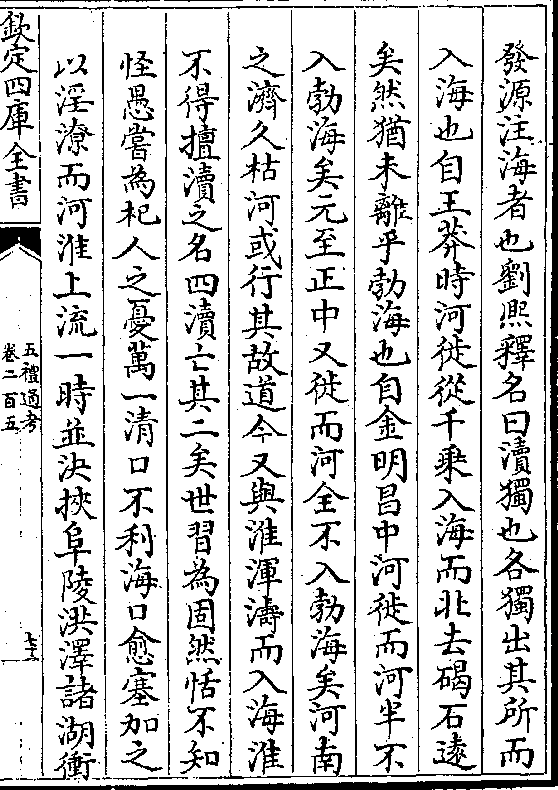 發源注海者也劉熙釋名曰瀆獨也各獨出其所而
入海也自王莽時河徙從千乘入海而北去碣石遠
矣然猶未離乎勃海也自金明昌中河徙而河半不
入勃海矣元至正中又徙而河全不入勃海矣河南
之濟久枯河或行其故道今又與淮渾濤而入海淮
不得擅瀆之名四瀆亡其二矣世習為固然恬不知
怪愚嘗為杞人之憂萬一清口不利海口愈塞加之
以淫潦而河淮上流一時並決挾阜陵洪澤諸湖衝
欽定四庫全書
五禮通考
卷二百五